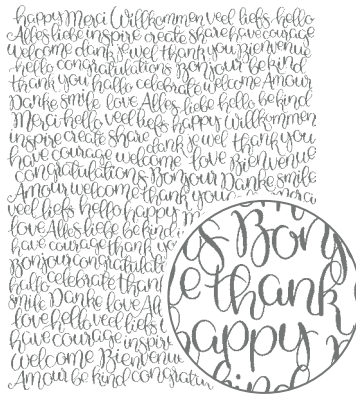 happy Merci Willkommen veel liefs hello
Alles liebe inspire create share have courage
welcome dank je wel thank you Bienvenue
hello congratulations Bonjour be kind
thank you hallo celebrate welcome Amour
Danke smile love Alles liebe hello be kind
Merci hello veel liefs happy Willkommen
inspire create share dank je wel thank you
have courage welcome love Bienvenue
congratulations Bonjour Danke smile
Amour welcome thank you merci
veel liefs hello happy
love Alles liebe be kind
have courage thank you
Bonjour congratulati
hallo celebrate than
smile Danke love Al
love hello veel liefs
have courage inspir
welcome Bienvenu
Amour be kind congratu
Bonj
thank
happy
kind